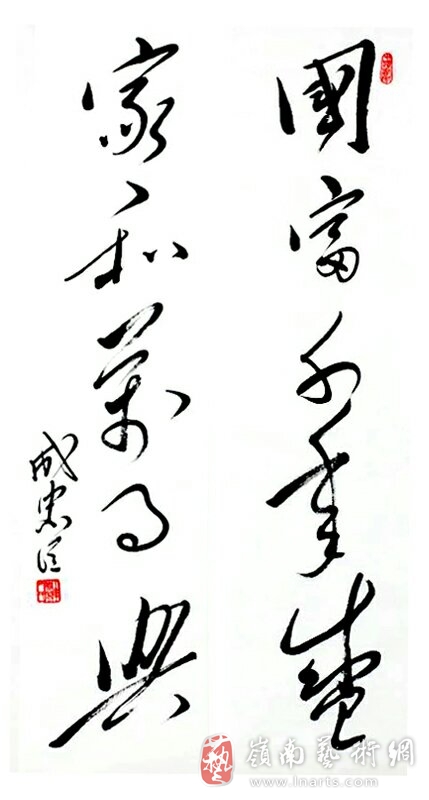 國富千年盛
家和萬事興
成忠臣
藝
嶺南藝術網
www.lnarts.com